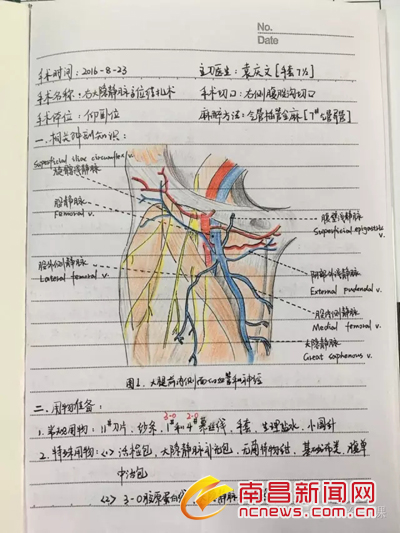 No.
Date
手术时间：2016-8-23
主刀医生：袁庆文［手套7½］
手术名称：右大隐静脉高位结扎术
手术切口：右侧腹股沟切口
手术体位：仰卧位
麻醉方法：全管插管全麻［7#
一.相关解剖知识：
Superficial iliac circumflex v.
旋髂浅静脉
股静脉
Femoral v.
股外侧静脉
Lateral femoral v.
腹壁浅静脉
Superficial epigastric v.
阴部外浅静脉
External pudendal v.
股内侧静脉
Medial femoral v.
大隐静脉
Great saphenous v.
图1.大腿前内侧面的血管和神经
二.用物准备：
1.常规用物：11#刀片，纱条，1#和4#慕丝线，手套，生理盐水，小圆针
3-0 2-0
2.特殊用物：<1>
大隐静脉
基础布类，腹单
<2> 3-0胶原蛋白线
南昌新闻网
ncnews.com.cn